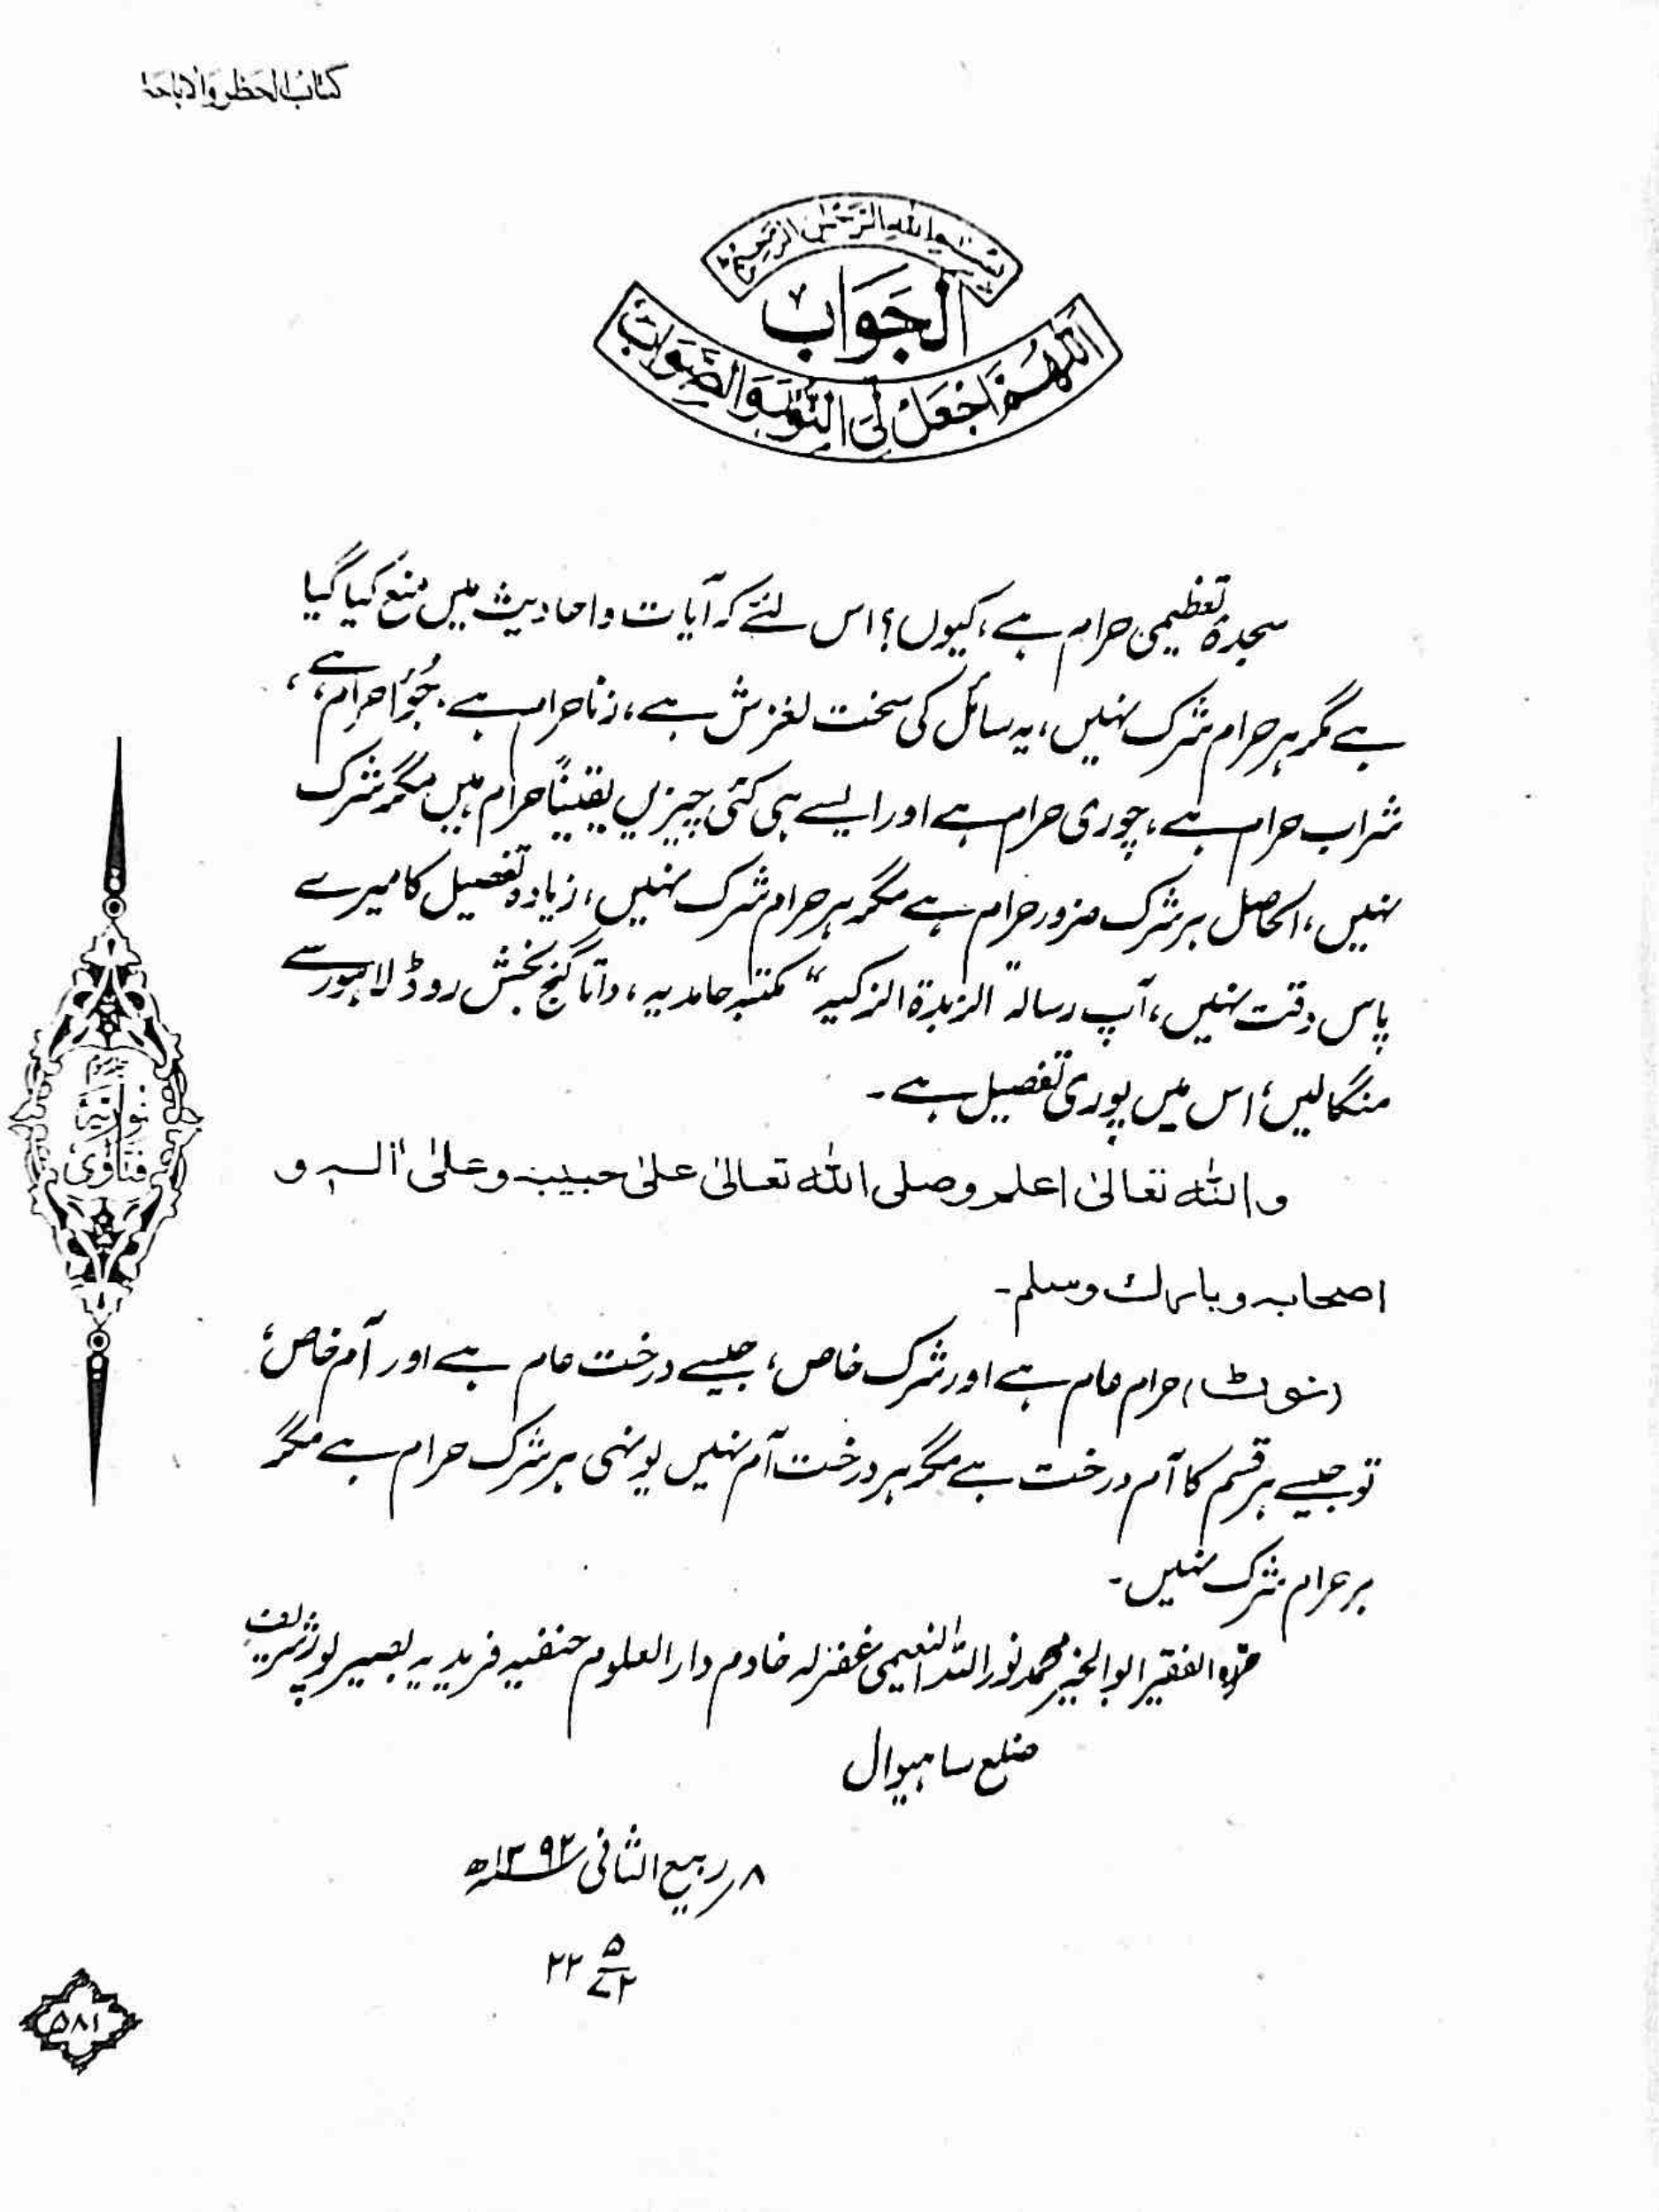 كتاب الحظر والاباحة
بسم الله الرحمن الرحيم
الجواب
اللهم اجعل لي النور والصواب
سجدۂ تعظیمی حرام ہے، کیوں؟ اس لئے کہ آیات و احادیث میں منع کیا گیا
ہے مگر ہر حرام شرک نہیں، یہ سائل کی سخت لغزش ہے، زنا حرام ہے، جُؤَا حرام ہے،
شراب حرام ہے، چوری حرام ہے اور ایسے ہی کئی چیزیں یقیناً حرام ہیں مگر شرک
نہیں، الحاصل ہر شرک ضرور حرام ہے مگر ہر حرام شرک نہیں، زیادہ تفصیل کا میرے
پاس وقت نہیں، آپ رسالہ "الزبدة الزکیہ" مکتبہ حامدیہ، داتا گنج بخش روڈ لاہور سے
منگا لیں، اس میں پوری تفصیل ہے۔
والله تعالیٰ اعلم وصلی الله تعالیٰ علیٰ حبیبہ وعلیٰ اٰلہ و
اصحابہ وبارك وسلم۔
(نوٹ) حرام عام ہے اور شرک خاص، جیسے درخت عام ہے اور آم خاص،
تو جیسے ہر قسم کا آم درخت ہے مگر ہر درخت آم نہیں یونہی ہر شرک حرام ہے مگر
ہر حرام شرک نہیں۔
حرّہ الفقیر ابوالخیر محمد نور اللہ النعیمی غفرلہ خادم دارالعلوم حنفیہ فریدیہ بصیر پور شریف
ضلع ساہیوال
۸ ربیع الثانی ۱۳۹۲ھ
۲۲ ۵/۷۲
فتاویٰ نوریہ
۵۸۱